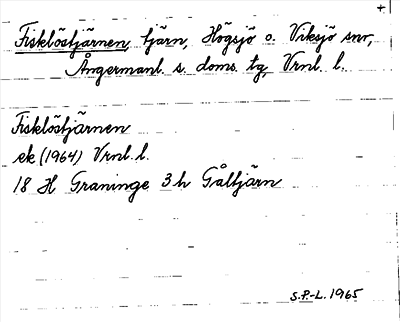 +.
Fisklöstjärnen, tjärn, Högsjö o. Viksjö snr,
Ångermanl. s. doms. tg, Vrnl. l.
Fisklöstjärnen
ek (1964) Vrnl. l.
18 H Graninge 3 h Gåltjärn
S.P.-L. 1965